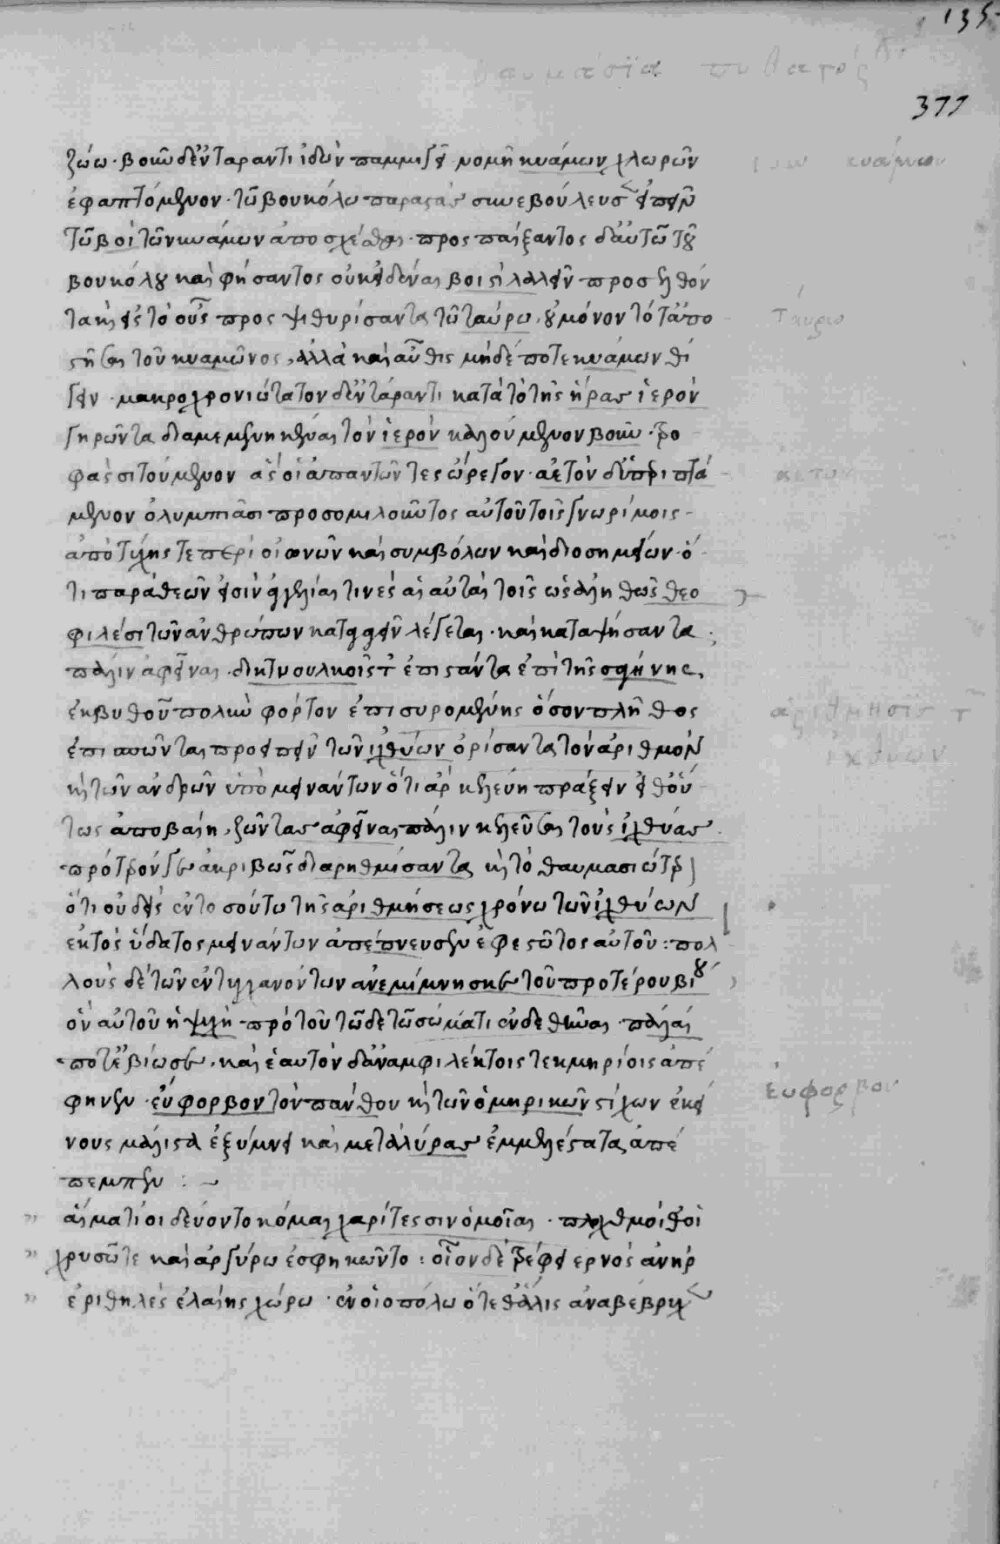 135
θαυμάσια πυθαγό
377
ζώω· βοῦν δ' ἐν Ταραντι ἰδὼν παμμιγεῖ νομῇ κυάμων χλωρῶν
ἐφαπτόμενον· τῶ βουκόλω παραστὰς συνεβούλευσε εἰπεῖν
τῶ βοῒ τῶν κυάμων ἀποσχέσθαι· προσπαίξαντος δ' αὐτῶ τοῦ
βουκόλου καὶ φήσαντος οὐκ εἰδέναι βοϊστὶ λαλεῖν προσελθόν
τα καὶ εἰς τὸ οὖς προσψιθυρίσαντα τῶ ταύρω, οὐ μόνον τότ' ἀπο
στῆσαι τοῦ κυαμῶνος, ἀλλὰ καὶ αὖθις μηδέποτε κυάμων θί
γειν· μακροχρονιώτατον δ' ἐν Τάραντι κατὰ τὸ τῆς ἥρας ἱερὸν
γηρῶντα διαμεμενηκέναι τὸν ἱερὸν καλούμενον βοῦν· τρο
φὰς σιτούμενον ἃς οἱ ἀπαντῶντες ὤρεγον· αἐτὸν δ' ὑπεριπτά
μενον ὀλυμπιᾶσι προσομιλοῦντος αὐτοῦ τοῖς γνωρίμοις
ἀπὸ τύχης τε περὶ οἰωνῶν καὶ συμβόλων καὶ διοσημειῶν· ὅ
τι παρὰ θεῶν εἰσὶν ἀγγελίαι τινές αἱ αὐταὶ τοῖς ὡς ἀληθῶς θεο
φιλέσι τῶν ἀνθρώπων καταγαγεῖν λέγεται· καὶ καταψήσαντα
πάλιν ἀφεῖναι· δικτυουλκοῖς τ' ἐπιστάντα ἐπὶ τῆς σαγήνης,
ἐκ βυθοῦ πολὺν φόρτον ἐπισυρομένης ὅσον πλῆθος
ἐπισπῶνται προειπεῖν τῶν ἰχθύων ὁρίσαντα τὸν ἀριθμόν
καὶ τῶν ἀνδρῶν ὑπομεινάντων ὅτι ἂν κελεύῃ πράξειν εἰ θ' οὕ
τως ἀποβαίη, ζῶντας ἀφεῖναι πάλιν κελεῦσαι τοὺς ἰχθύας
πρότερόν γε ἀκριβῶς διαριθμήσαντα καὶ τὸ θαυμασιώτερον
ὅτι οὐδεὶς ἐν τοσούτω τῆς ἀριθμήσεως χρόνω τῶν ἰχθύων
ἐκτὸς ὕδατος μεινάντων ἀπέπνευσεν ἐφεστῶτος αὐτοῦ: πολ
λοὺς δὲ τῶν ἐντυγχανόντων ἀνεμίμνησκε τοῦ προτέρου βίου
ὃν αὐτοῦ ἡ ψυχὴ πρὸ τοῦ τῶδε τῶ σώματι ἐνδεθῆναι πάλαι
ποτ' ἐβίωσε· καὶ ἑαυτὸν δ' ἀναμφιλέκτοις τεκμηρίοις ἀπέ
φηνεν εὔφορβον τὸν πάνθου καὶ τῶν ὁμηρικῶν στίχων ἐκεί
νους μάλιστα ἐξύμνει καὶ μετὰ λύρας ἐμμελέστατα ἀπέ
πεμπεν :~
αἵματί οἱ δεύοντο κόμαι χαρίτεσσιν ὁμοῖαι· πλοχμοί θ' οἳ
χρυσῶ τε καὶ ἀργύρω ἐσφηκῶντο: οἷον δὲ τρέφει ἔρνος ἀνὴρ
ἐριθηλὲς ἐλαίης χώρω· ἐν οἰοπόλω ὅτε θ' ἅλις ἀναβέβρυχε
κυάμων
Ταύρω
ἀετὸν
ἀρίθμησις τ
ἰχθύων
ἔυφορβον